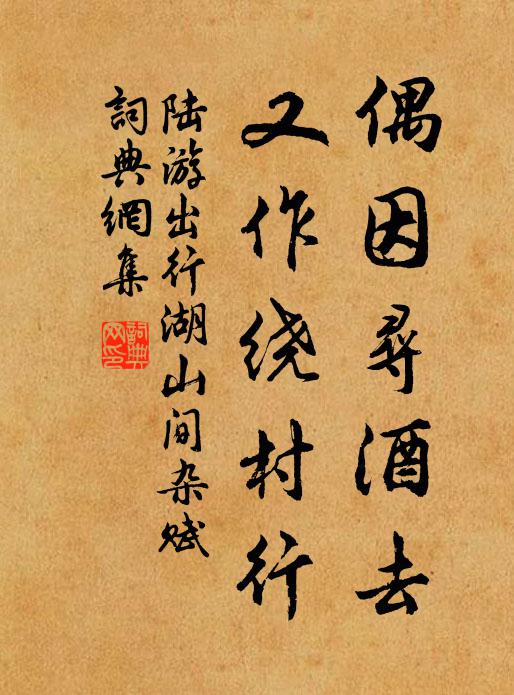 偶因尋酒去
又作绕村行
陆游出行湖山间杂赋
詞典網集
詞典网印